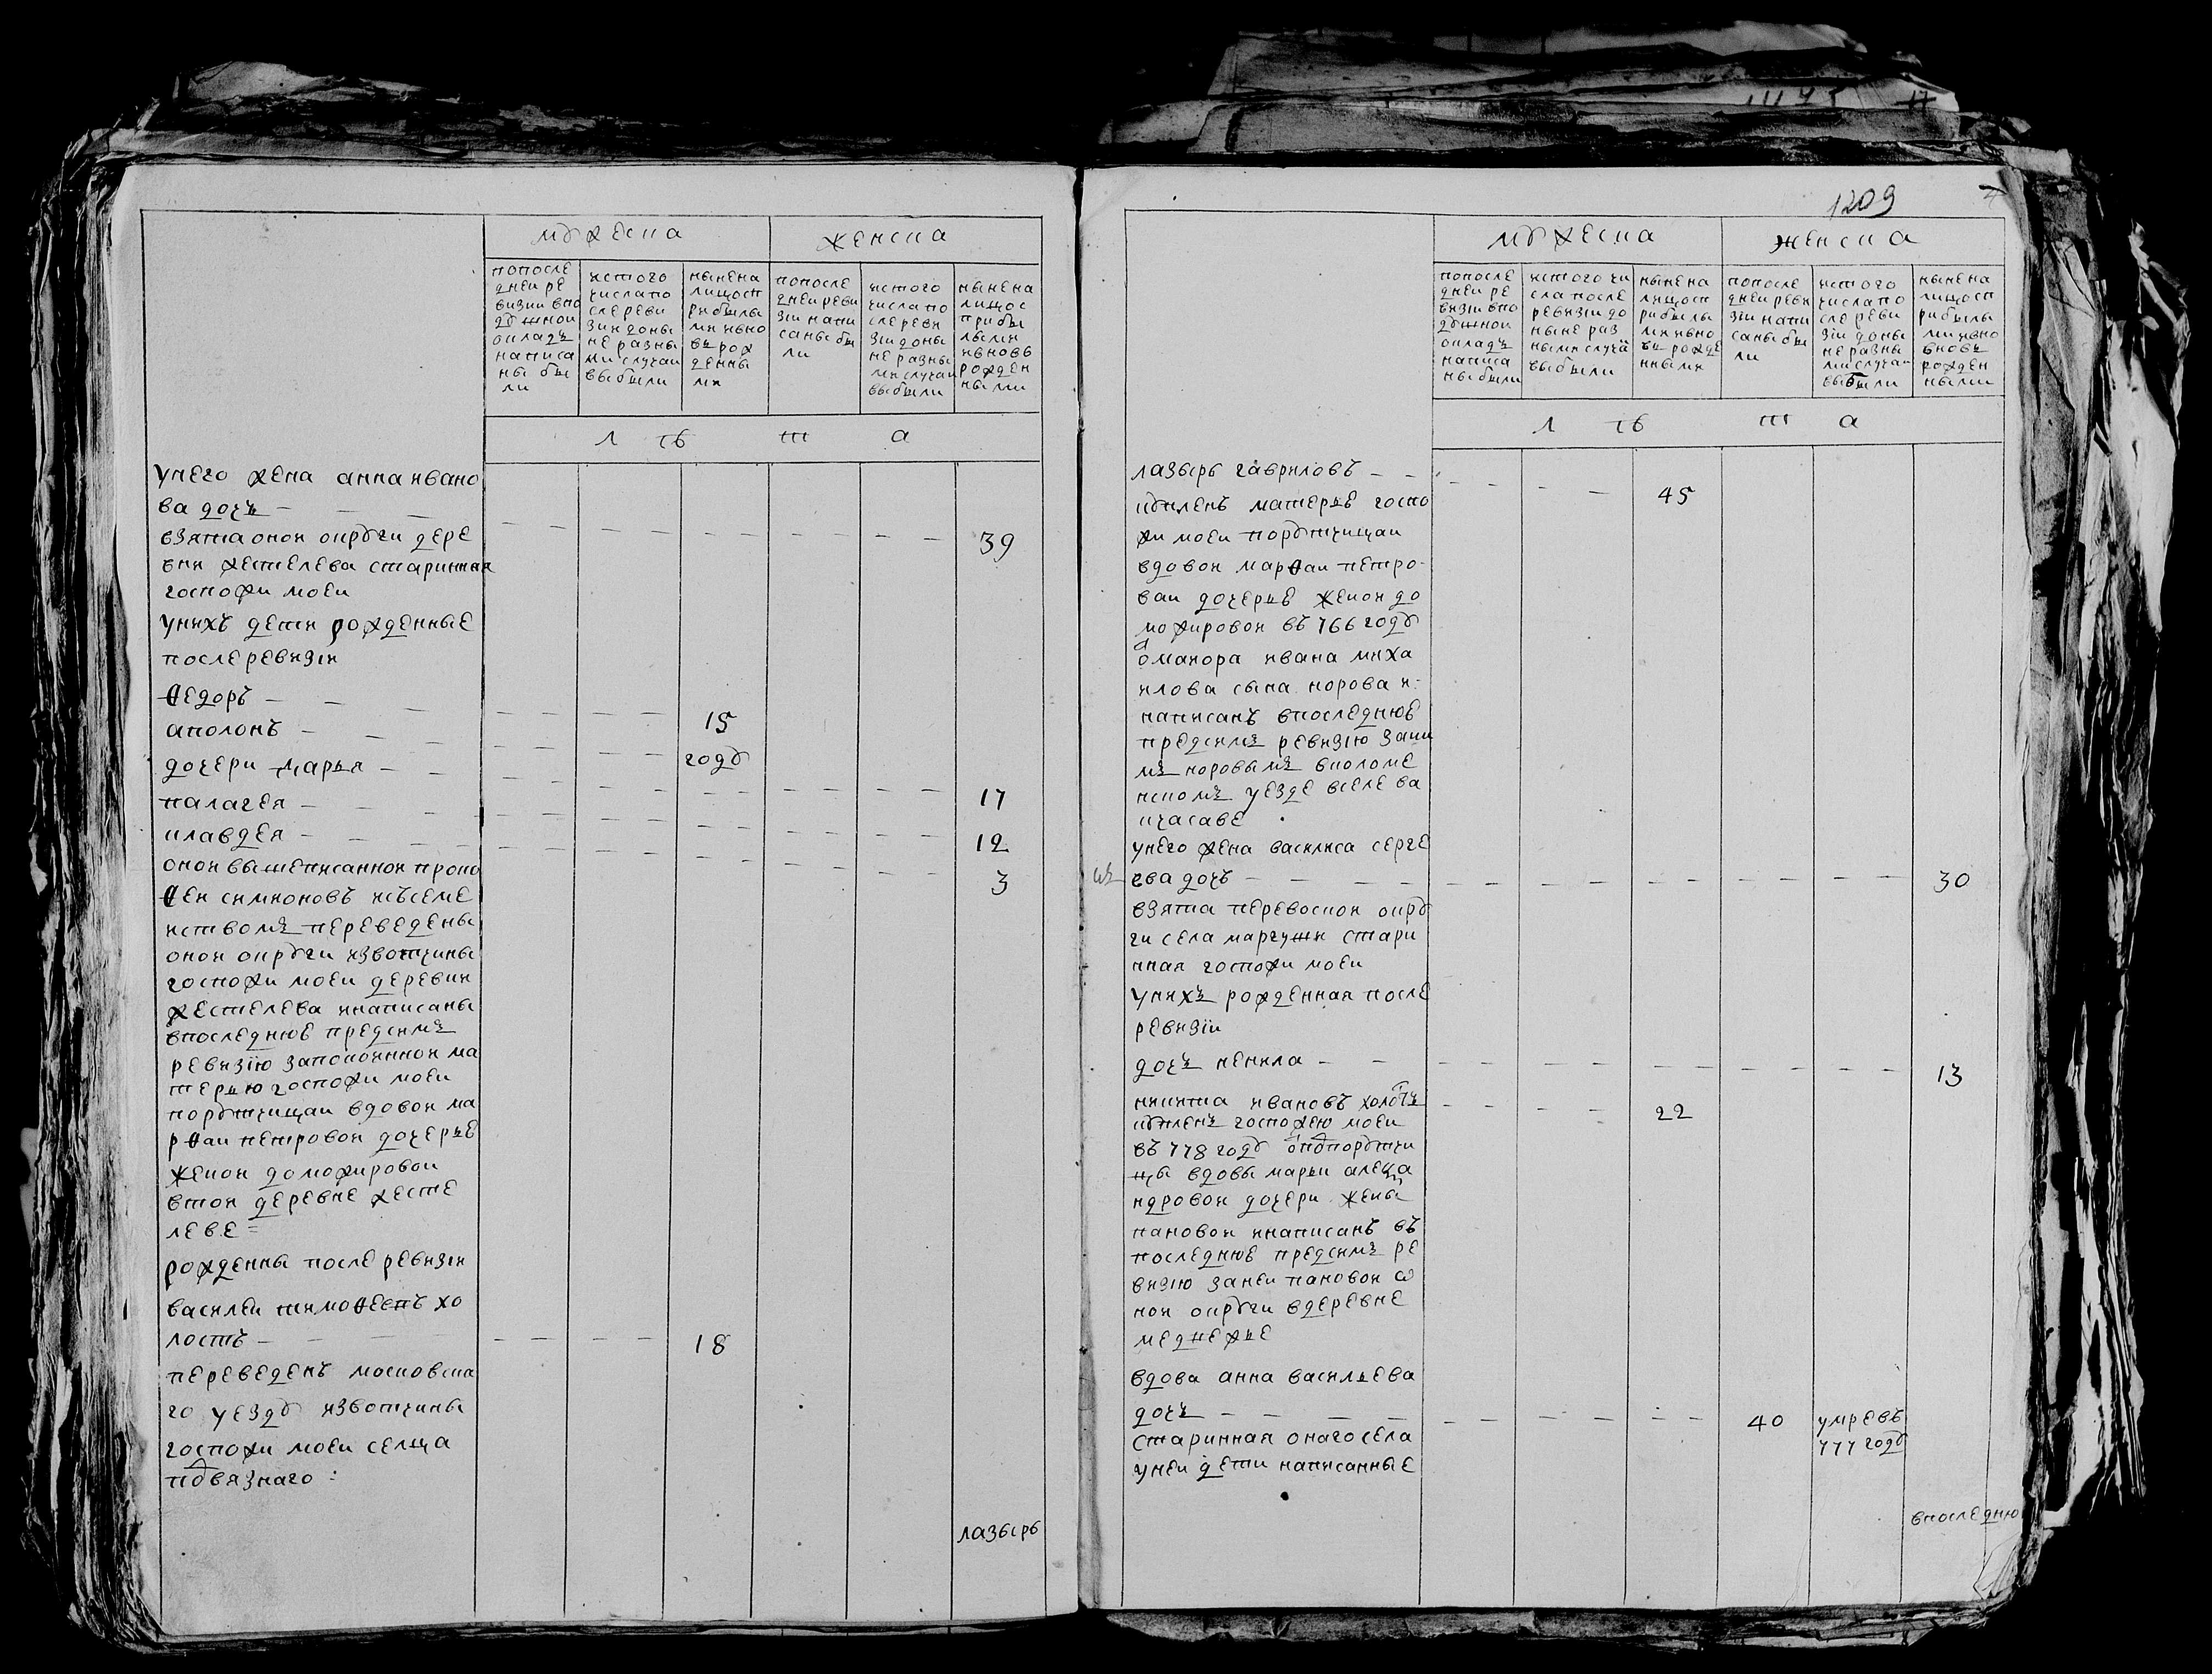 мужеска
женска
попосле
дней ре
визии впо
душной
окладъ
написа
ны бы
ли
истого
числапо
слереви
зии доны
не разны
ми случаи
выбыли
ныне на
лицосп
рибылы
ми ивно
въ рож
денны
ми
попосле
днеи реви
зiи напи
саны бы
ли
истого
числапо
слереви
зiи доны
не разны
ми случаи
выбыли
ныне на
лицос
прибы
лыми
ивновь
рожден
ными
л ѣ т а
унего жена анна ивано
ва дочь
взята оной округи дере 39
вни жестелева старинная
госпожи моеи
унихъ дети рожденные
после ревизiи
ѳедоръ 15
аполонъ году
дочери марья 17
палагея 12
клавдея 3
оной вышеписанной проко
ѳей симионовъ исъсеме
иствомъ переведены
оной округи извотчины
госпожи моеи деревни
жестелева инаписаны
впоследнюю предсимъ
ревизiю запокойнной ма
терью госпожи моеи
порутчицаи вдовой ма
рѳаи петровой дочерье
женой доможировои
втои деревне жесте
леве
рождены после ревизiи
василеи тимоѳеевъ хо
лостъ 18
переведенъ московска
го уезду извотчины
госпожи моеи селца
подвязнаго
лазырь
1209
мужеска
женска
попосле
днеи ре
визiи впо
душнои
окладъ
написа
ны были
истого чи
сла после
ревизiи до
ныне раз
ными случа
выбыли
ныне на
лицосп
рибылы
ми ивно
въ рожде
нными
попосле
днеи реви
зiи напи
саны бы
ли
истого
числапо
сле реви
зiи доны
не разны
ми случа
выбыли
ныне на
лицосп
рибылы
ми ивно
вновь
рожден
ными
л ѣ т а
лазырь гавриловъ 45
купленъ матерье госпо
жи моеи порутчицаи
вдовой марѳаи петро
ваи дочерье женой до
можировой въ 766 году
от маиора ивана миха
илова сына норова и
написанъ впоследнюю
предсимъ ревизiю заии
мъ норовымъ вколоме
нскомъ уезде вселе ва
ичасаве
унего жена василиса серге
ева дочь 30
взята перевоской окру
ги села маргуши стари
нная госпожи моеи
унихъ рожденная после
ревизiи
дочь ненила 13
никита ивановъ холостъ 22
купленъ госпожею моеи
въ 778 году отпорутчи
цы вдовы марьи алекса
ндровой дочери жены
пановой инаписанъ въ
последнюю предсимъ ре
визiю занеи пановой ѡ
ной округи вдеревне
вдова анна васильева
дочь 40 умре въ
старинная онаго села 777 году
унеи дети написанные
впоследнюю